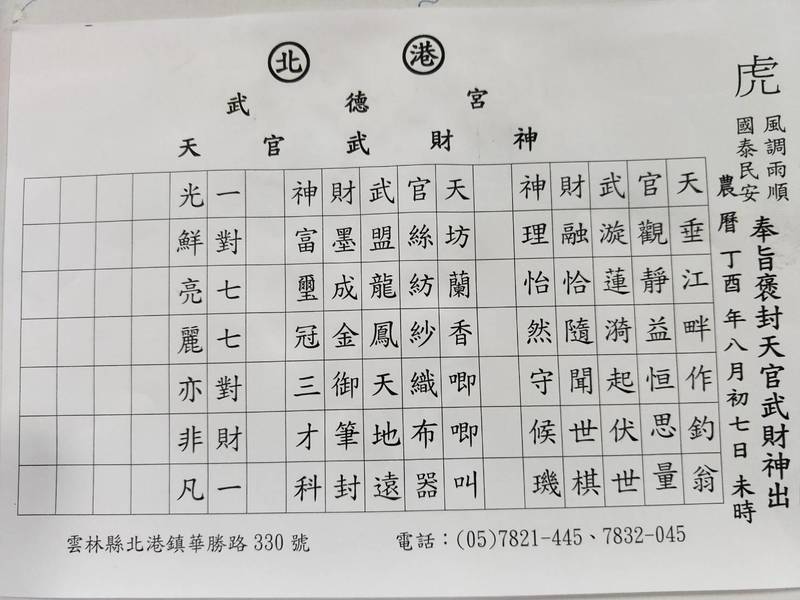 北港
武德宮
天官武財神
虎
風調雨順
國泰民安
奉旨褒封天官武財神出
農曆丁酉年八月初七日未時
天垂江畔作釣翁
官觀靜益恒思量
武漩蓮漪起伏世
財融恰隨聞世棋
神理怡然守候璣
天坊蘭香唧唧叫
官絲紡紗織布器
武盟龍鳳天地遠
財墨成金御筆封
神富璽冠三才科
一對七七對財一
光鮮亮麗亦非凡
雲林縣北港鎮華勝路330號
電話：(05)7821-445、7832-045